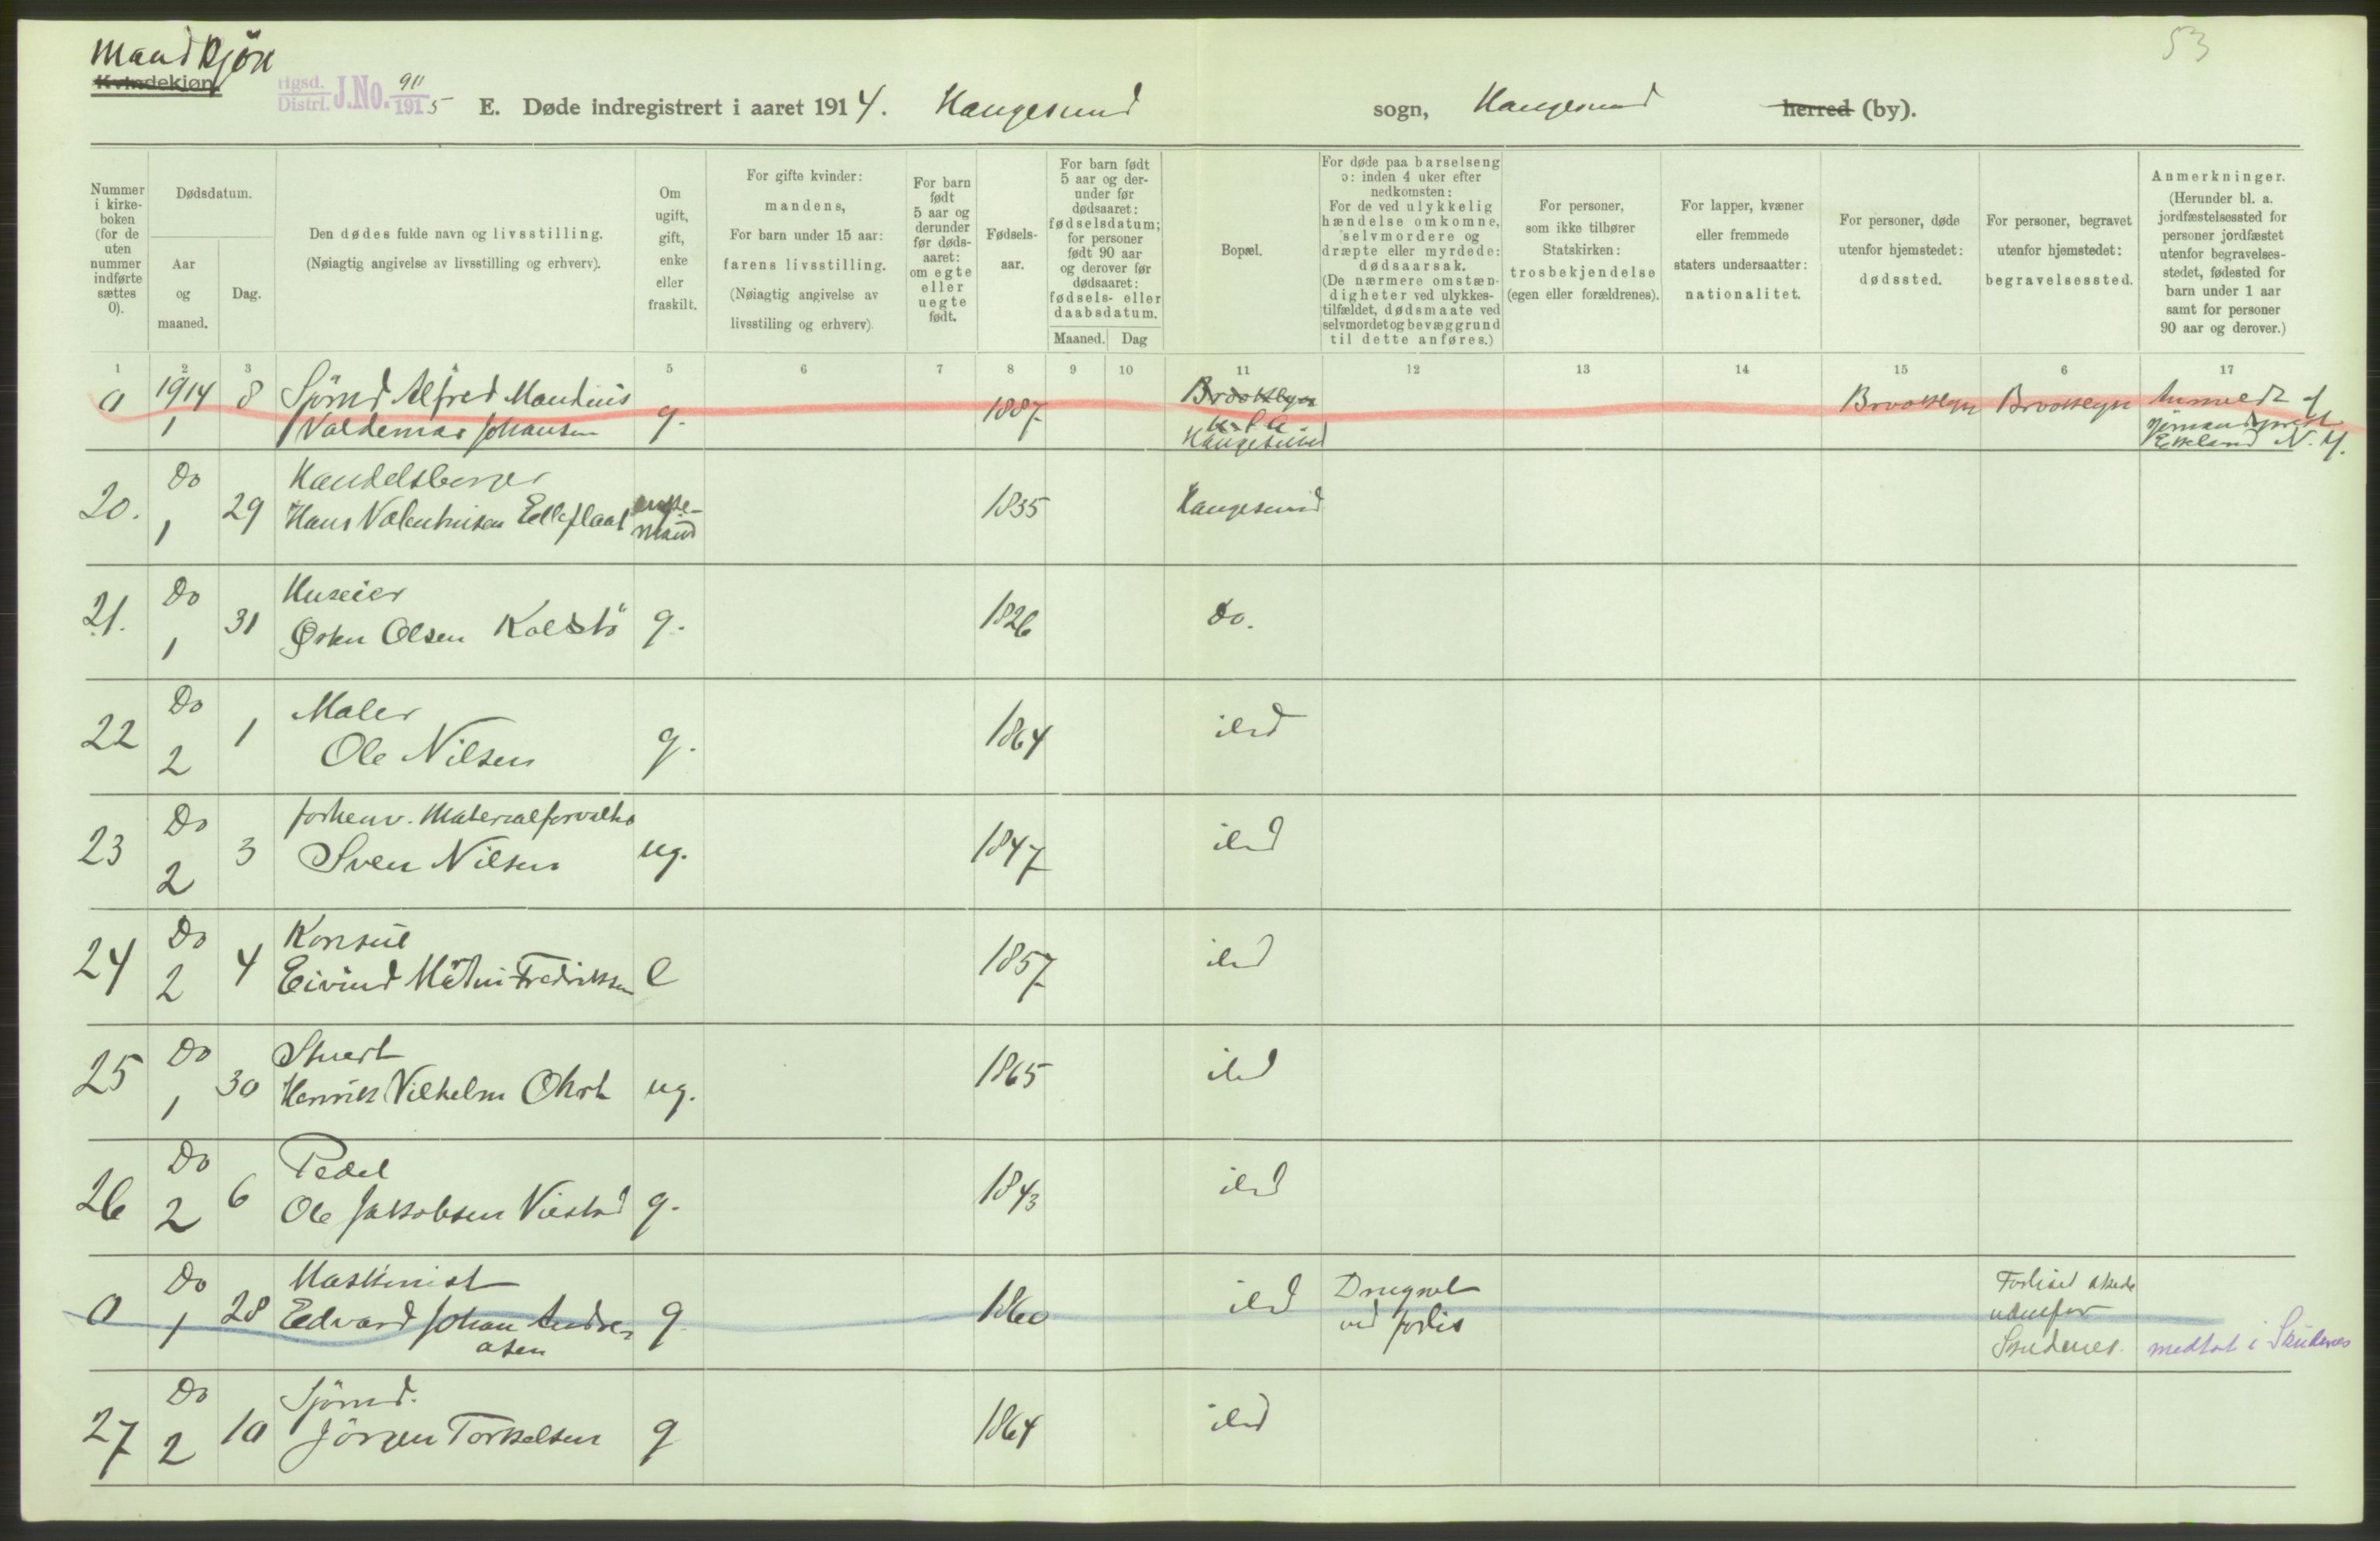 Mandkjön
Kvindekjøn.
53
Hgsd. Distri. J.No. 911 1915
E. Døde indregistrert i aaret 1914. Haugesund sogn, Haugesund herred (by).
Nummer i kirkeboken (for de uten nummer indførte sættes 0).
Dødsdatum.
Aar og maaned.
Dag.
Den dødes fulde navn og livsstilling.
(Nøiagtig angivelse av livsstilling og erhverv).
Om ugift, gift, enke eller fraskilt.
For gifte kvinder: mandens,
For barn under 15 aar: farens livsstilling.
(Nøiagtig angivelse av livsstiling og erhverv).
For barn født 5 aar og derunder før dødsaaret: om egte eller uegte født.
Fødselsaar.
For barn født 5 aar og derunder før dødsaaret: fødselsdatum; for personer født 90 aar og derover før dødsaaret: fødsels- eller daabsdatum.
Maaned. Dag
Bopæl.
For døde paa barselseng ɔ: inden 4 uker efter nedkomsten:
For de ved ulykkelig hændelse omkomne, selvmordere og dræpte eller myrdede: dødsaarsak.
(De nærmere omstændigheter ved ulykkestilfældet, dødsmaate ved selvmordet og bevæggrund til dette anføres.)
For personer, som ikke tilhører Statskirken: trosbekjendelse (egen eller forældrenes).
For lapper, kvæner eller fremmede staters undersaatter: nationalitet.
For personer, døde utenfor hjemstedet: dødssted.
For personer, begravet utenfor hjemstedet: begravelsessted.
Anmerkninger.
(Herunder bl. a. jordfæstelsessted for personer jordfæstet utenfor begravelsesstedet, fødested for barn under 1 aar samt for personer 90 aar og derover.)
1 2 3 5 6 7 8 9 10 11 12 13 14 15 6 17
0 1914 1 8 Sjömd Alfred Mandius Valdemar Johansen g. 1887 Brooklyn U.S.A. Haugesund Brooklyn Brooklyn Anmeldt af sjömandsprest Ekeland N.Y.
20. Do 1 29 Handelsborger
Hans Valentinsen Elleflaat enkemand 1835 Haugesund
21. Do 1 31 Huseier
Østen Olsen Kolstö g. 1826 Do.
22 Do 2 1 Maler
Ole Nilsen g. 1864 ibd
23 Do 2 3 forhenv. Materialforvalter
Sven Nilsen ug. 1847 ibd
24 Do 2 4 Konsul
Eivind Fredriksen e 1857 ibd
25 Do 1 30 Stuert
Henrik Vilhelm Ohrt ug. 1865 ibd
26 Do 2 6 Pedel
Ole Jakobsen Viestad g. 1843 ibd
0 Do 1 28 Maskinist
Edvard Johan Andreasen g 1860 ibd Druknet ved forlis Forliset skede udenfor Skudenes. medtat i Skudenes
27 Do 2 10 Sjömd.
Jörgen Torkelsen g 1864 ibd